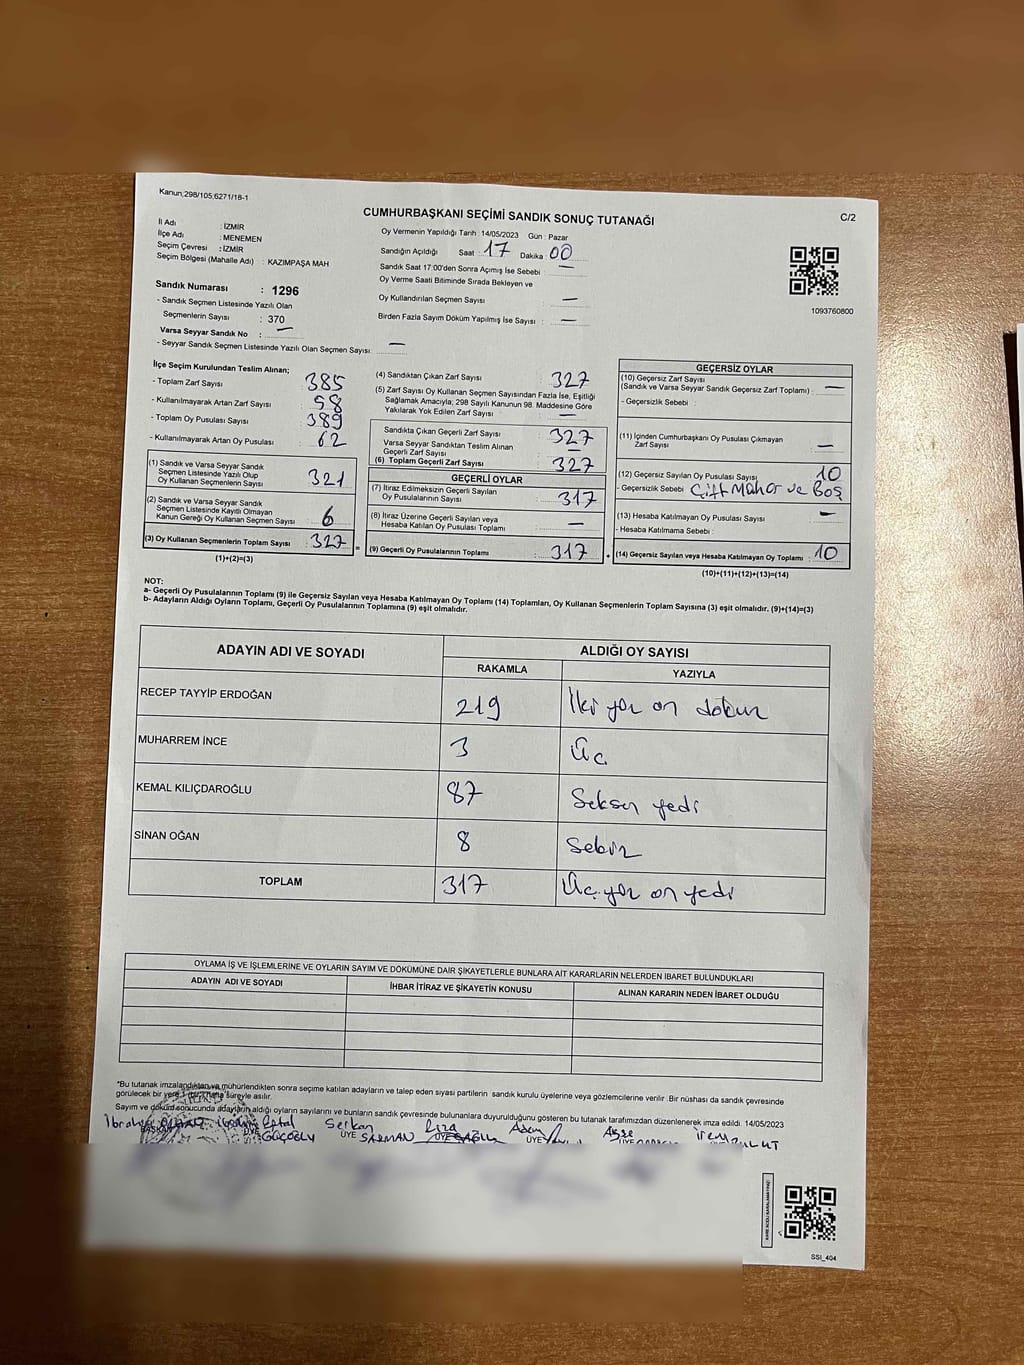 Kanun;298/105;6271/18-1
CUMHURBAŞKANI SEÇİMİ SANDIK SONUÇ TUTANAĞI
C/2
İl Adı : İZMİR
İlçe Adı : MENEMEN
Seçim Çevresi : İZMİR
Seçim Bölgesi (Mahalle Adı) : KAZIMPAŞA MAH
Sandık Numarası : 1296
- Sandık Seçmen Listesinde Yazılı Olan
Seçmenlerin Sayısı : 370
Varsa Seyyar Sandık No : —
- Seyyar Sandık Seçmen Listesinde Yazılı Olan Seçmen Sayısı: —
Oy Vermenin Yapıldığı Tarih :14/05/2023 Gün : Pazar
Sandığın Açıldığı Saat : 17 Dakika 00
Sandık Saat 17:00'den Sonra Açımış İse Sebebi : —
Oy Verme Saati Bitiminde Sırada Bekleyen ve
Oy Kullandırılan Seçmen Sayısı —
Birden Fazla Sayım Döküm Yapılmış İse Sayısı : —
1093760800
İlçe Seçim Kurulundan Teslim Alınan;
- Toplam Zarf Sayısı : 385
- Kullanılmayarak Artan Zarf Sayısı : 58
- Toplam Oy Pusulası Sayısı : 389
- Kullanılmayarak Artan Oy Pusulası : 62
(1) Sandık ve Varsa Seyyar Sandık
Seçmen Listesinde Yazılı Olup
Oy Kullanan Seçmenlerin Sayısı : 321
(2) Sandık ve Varsa Seyyar Sandık
Seçmen Listesinde Kayıtlı Olmayan
Kanun Gereği Oy Kullanan Seçmen Sayısı : 6
(3) Oy Kullanan Seçmenlerin Toplam Sayısı : 327
(1)+(2)=(3)
(4) Sandıktan Çıkan Zarf Sayısı : 327
(5) Zarf Sayısı Oy Kullanan Seçmen Sayısından Fazla İse, Eşitliği
Sağlamak Amacıyla; 298 Sayılı Kanunun 98. Maddesine Göre
Yakılarak Yok Edilen Zarf Sayısı : —
Sandıkta Çıkan Geçerli Zarf Sayısı : 327
Varsa Seyyar Sandıktan Teslim Alınan
Geçerli Zarf Sayısı : —
(6) Toplam Geçerli Zarf Sayısı : 327
GEÇERLİ OYLAR
(7) İtiraz Edilmeksizin Geçerli Sayılan
Oy Pusulalarının Sayısı : 317
(8) İtiraz Üzerine Geçerli Sayılan veya
Hesaba Katılan Oy Pusulası Toplamı : —
= (9) Geçerli Oy Pusulalarının Toplamı : 317
GEÇERSİZ OYLAR
(10) Geçersiz Zarf Sayısı
(Sandık ve Varsa Seyyar Sandık Geçersiz Zarf Toplamı) : —
- Geçersizlik Sebebi :
(11) İçinden Cumhurbaşkanı Oy Pusulası Çıkmayan
Zarf Sayısı : —
(12) Geçersiz Sayılan Oy Pusulası Sayısı : 10
- Geçersizlik Sebebi : Çift Mühür ve Boş
(13) Hesaba Katılmayan Oy Pusulası Sayısı : —
- Hesaba Katılmama Sebebi :
+ (14) Geçersiz Sayılan veya Hesaba Katılmayan Oy Toplamı : 10
(10)+(11)+(12)+(13)=(14)
NOT:
a- Geçerli Oy Pusulalarının Toplamı (9) ile Geçersiz Sayılan veya Hesaba Katılmayan Oy Toplamı (14) Toplamları, Oy Kullanan Seçmenlerin Toplam Sayısına (3) eşit olmalıdır. (9)+(14)=(3)
b- Adayların Aldığı Oyların Toplamı, Geçerli Oy Pusulalarının Toplamına (9) eşit olmalıdır.
ADAYIN ADI VE SOYADI ALDIĞI OY SAYISI
RAKAMLA YAZIYLA
RECEP TAYYİP ERDOĞAN 219 İki yüz on dokuz
MUHARREM İNCE 3 Üç
KEMAL KILIÇDAROĞLU 87 Seksen yedi
SİNAN OĞAN 8 Sekiz
TOPLAM 317 Üç yüz on yedi
OYLAMA İŞ VE İŞLEMLERİNE VE OYLARIN SAYIM VE DÖKÜMÜNE DAİR ŞİKAYETLERLE BUNLARA AİT KARARLARIN NELERDEN İBARET BULUNDUKLARI
ADAYIN ADI VE SOYADI İHBAR İTİRAZ VE ŞİKAYETİN KONUSU ALINAN KARARIN NEDEN İBARET OLDUĞU
*Bu tutanak imzalandıktan ve mühürlendikten sonra seçime katılan adayların ve talep eden siyasi partilerin sandık kurulu üyelerine veya gözlemcilerine verilir. Bir nüshası da sandık çevresinde
görülecek bir yere 1 (bir) hafta süreyle asılır.
Sayım ve döküm sonucunda adayların aldığı oyların sayılarını ve bunların sandık çevresinde bulunanlara duyurulduğunu gösteren bu tutanak tarafımızdan düzenlenerek imza edildi. 14/05/2023
Serkan Rıza Adem Ayşe İrem
BAŞKAN ÜYE ÜYE SARMAN ÜYE ÜYE BULUT
SSI_404